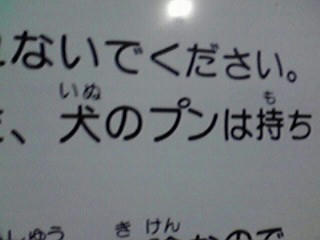 ないでください。
、犬のプンは持ち
いぬ も
しゅう き けん
ので